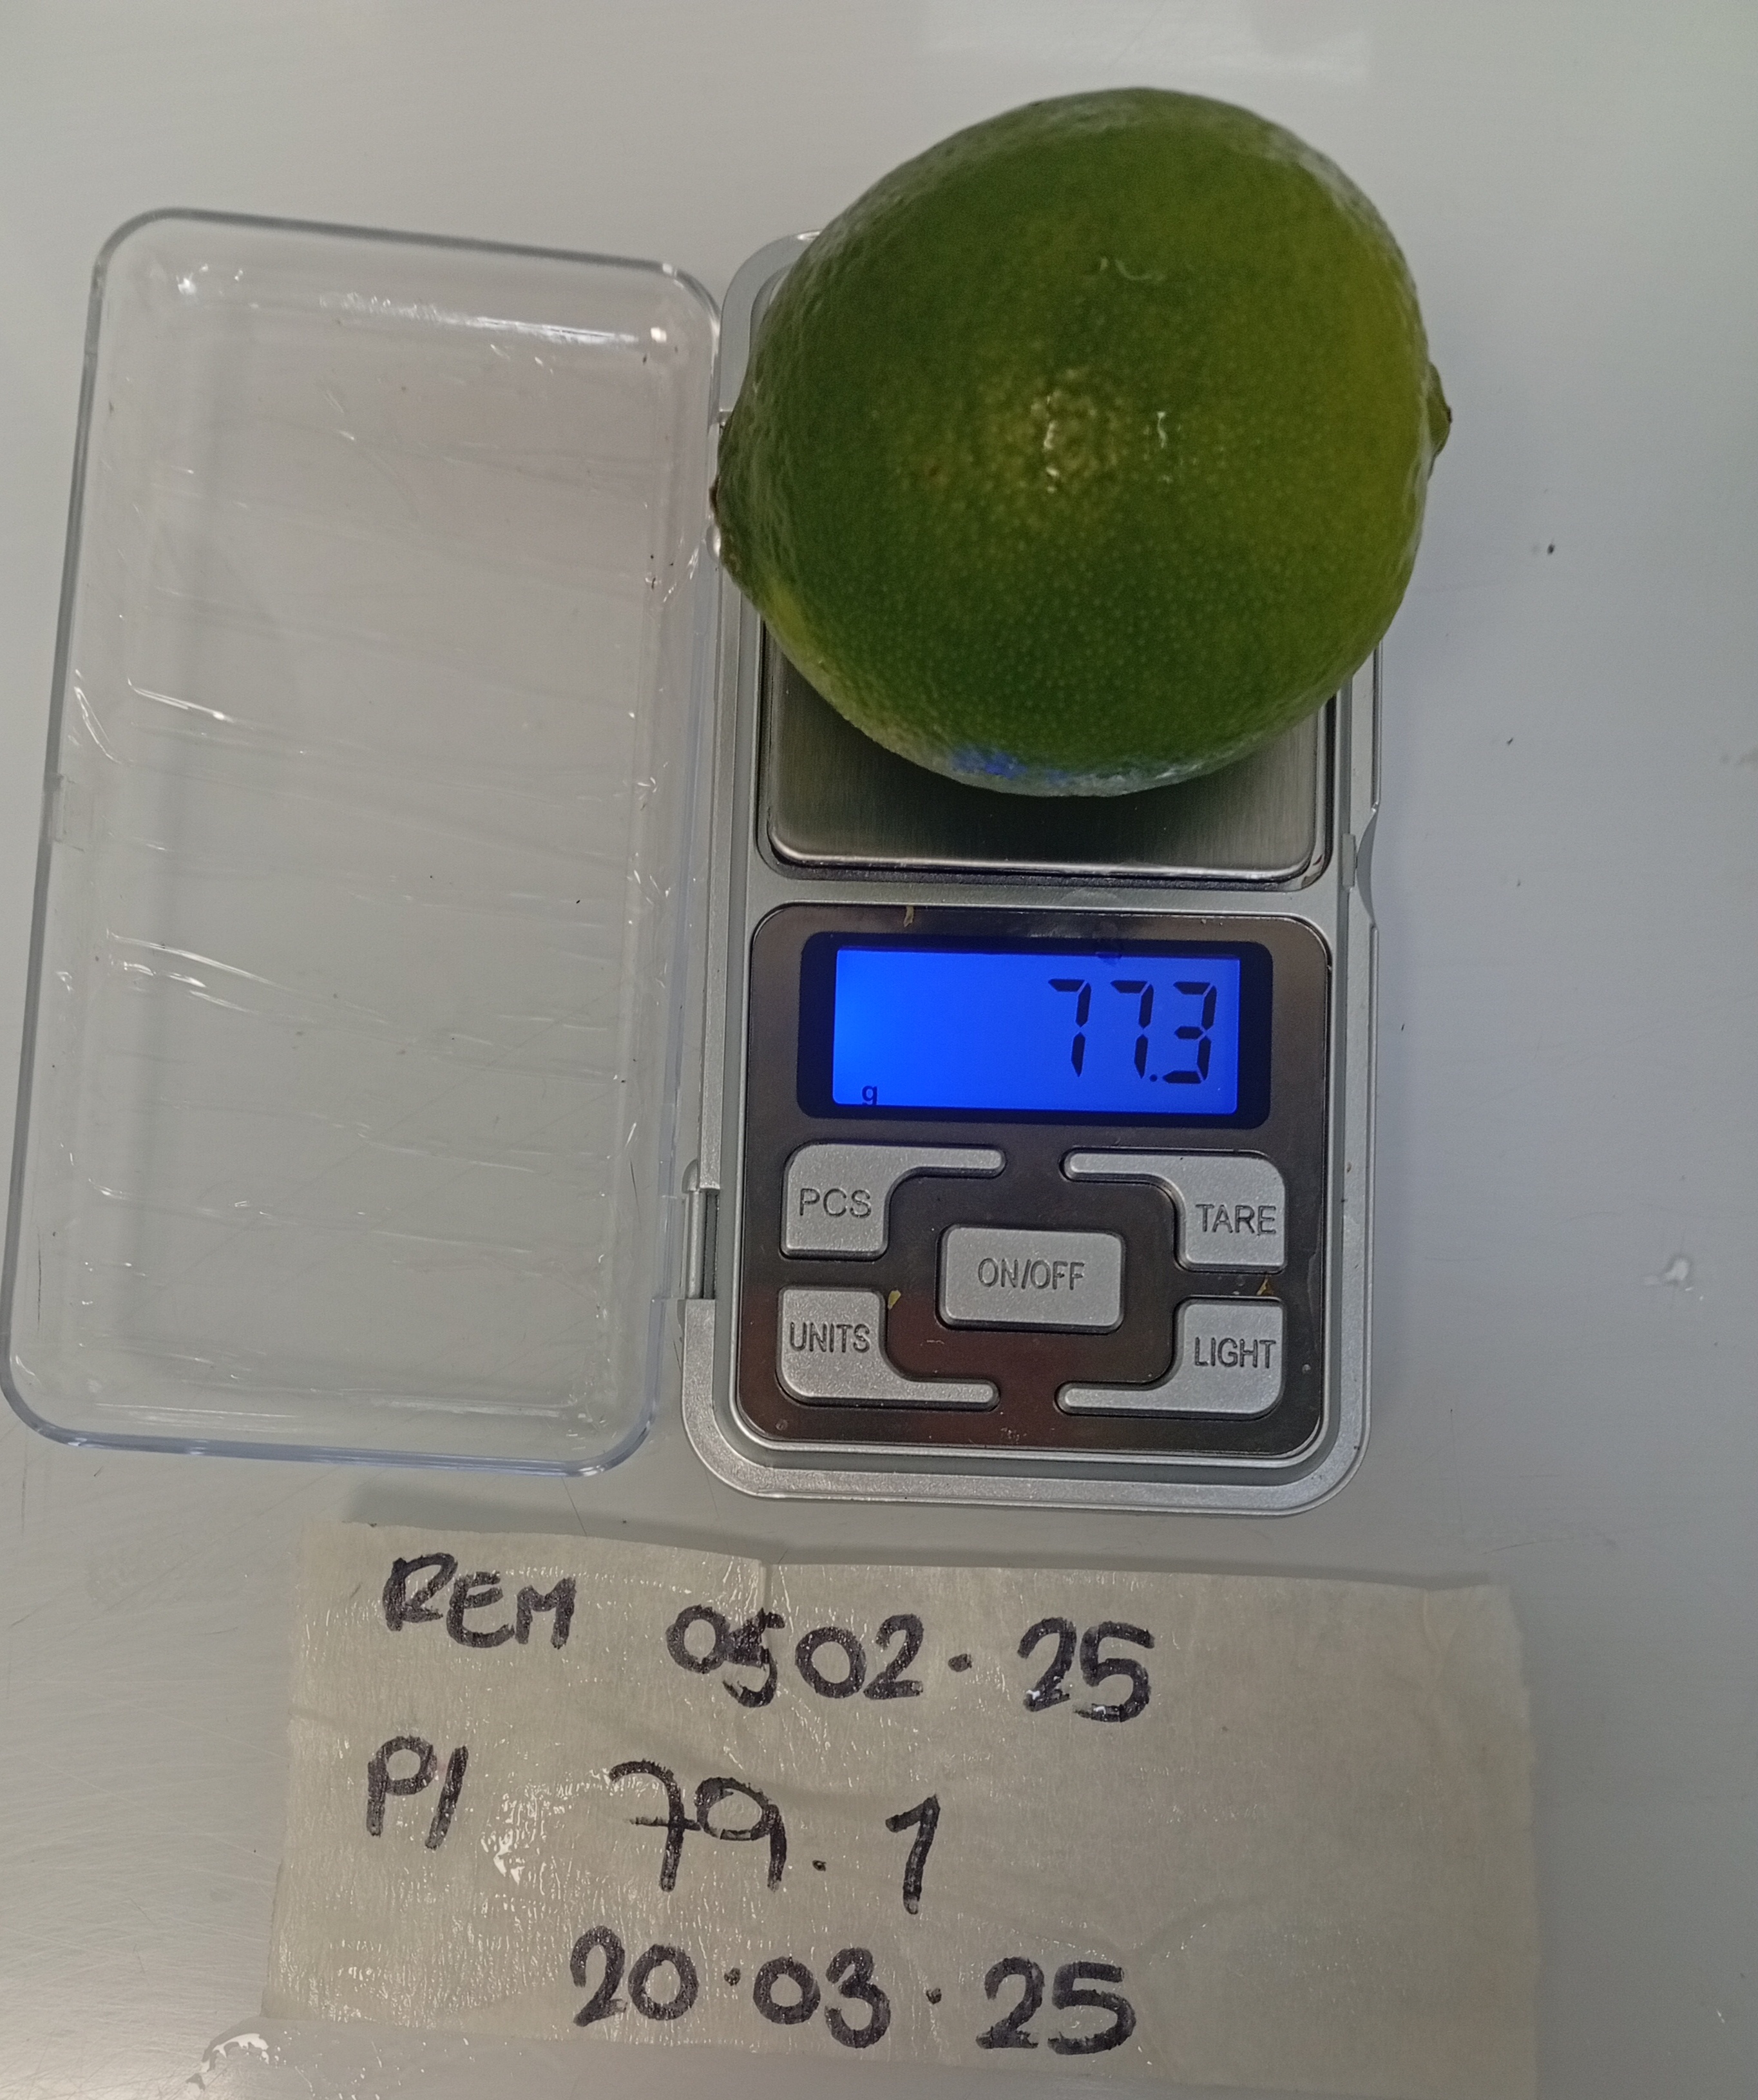 77.3
g
PCS
TARE
ON/OFF
UNITS
LIGHT
REM 0502·25
PI 79.1
20·03·25